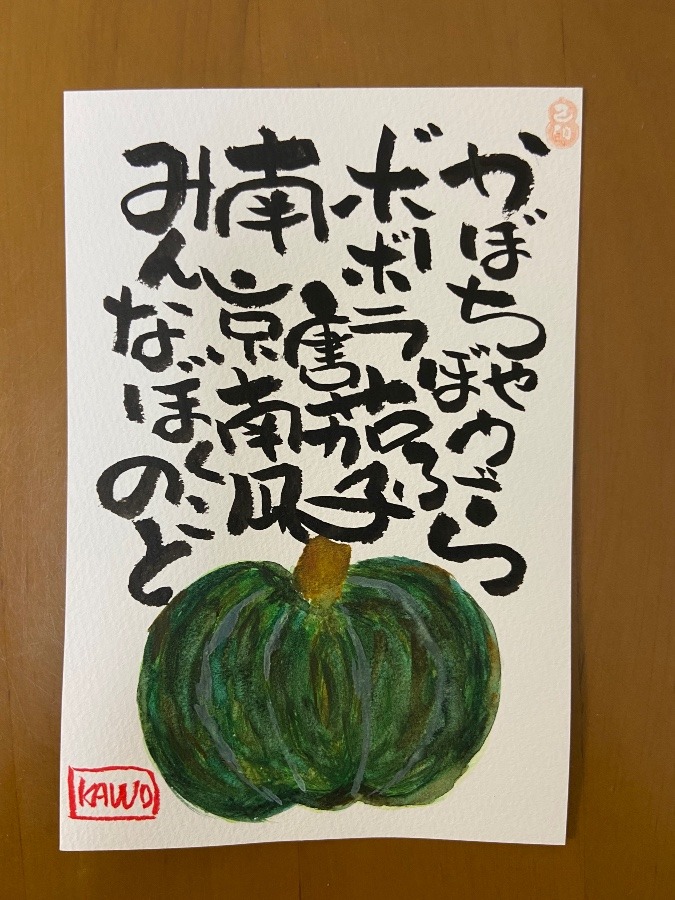 かぼちゃ
ぼうぶら
ボボラ
唐茄子
南京
南瓜
みんなぼくのこと
KAWO